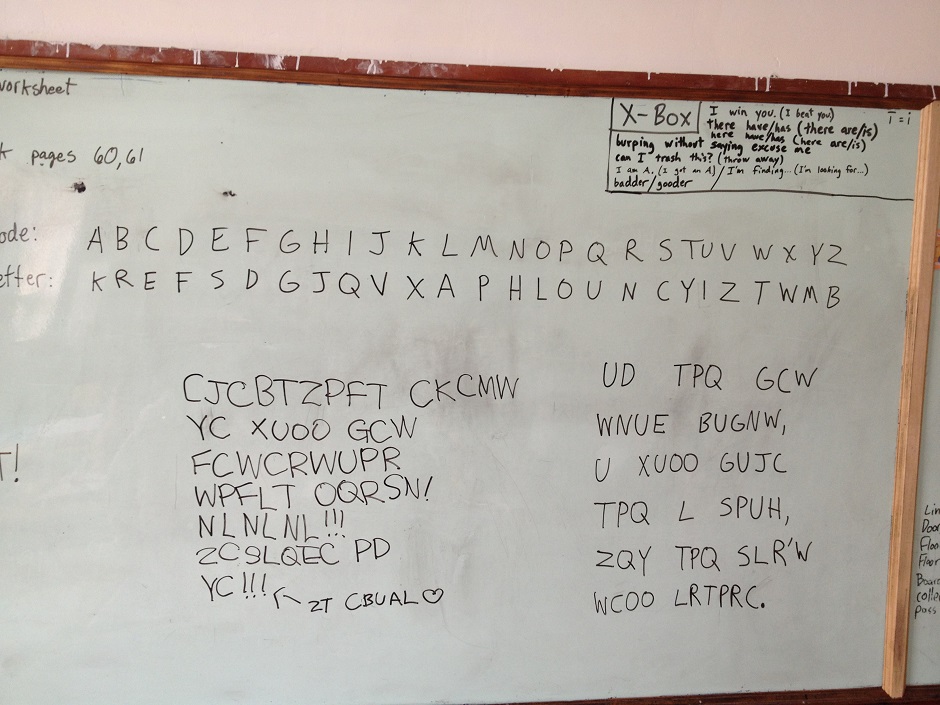 worksheet
pages 60,61
X-Box
I win you. (I beat you)
there have/has (there are/is)
here have/has (here are/is)
burping without saying excuse me
can I trash this? (throw away)
I am A. (I got an A) / I'm finding... (I'm looking for...)
badder/gooder
ī = i
ode: A B C D E F G H I J K L M N O P Q R S T U V W X Y Z
etter: K R E F S D G J Q V X A P H L O U N C Y I Z T W M B
CJCBTZPFT CKCMW
YC XUOO GCW
FCWCRWUPR
WPFLT OQRSN!
NLNLNL!!!
ZCSLQEC PD
YC!!!
ZT CBUAL♡
T!
UD TPQ GCW
WNUE BUGNW,
U XUOO GUJC
TPQ L SPUH,
ZQY TPQ SLR'W
WCOO LRTPRC.
Lin
Doo
Floo
Floor
Boar
colle
pass